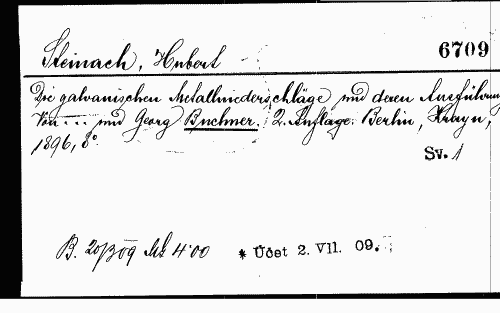 Steinach, Hubert 6709
Die galvanischen Metallniederschläge und deren Ausführung
Von ... und Georg Buchner. 2. Auflage. Berlin, Krayn,
1896, 8°
Sv. 1
B. 20/3 09 Mk 4·00 * Účet 2. VII. 09.